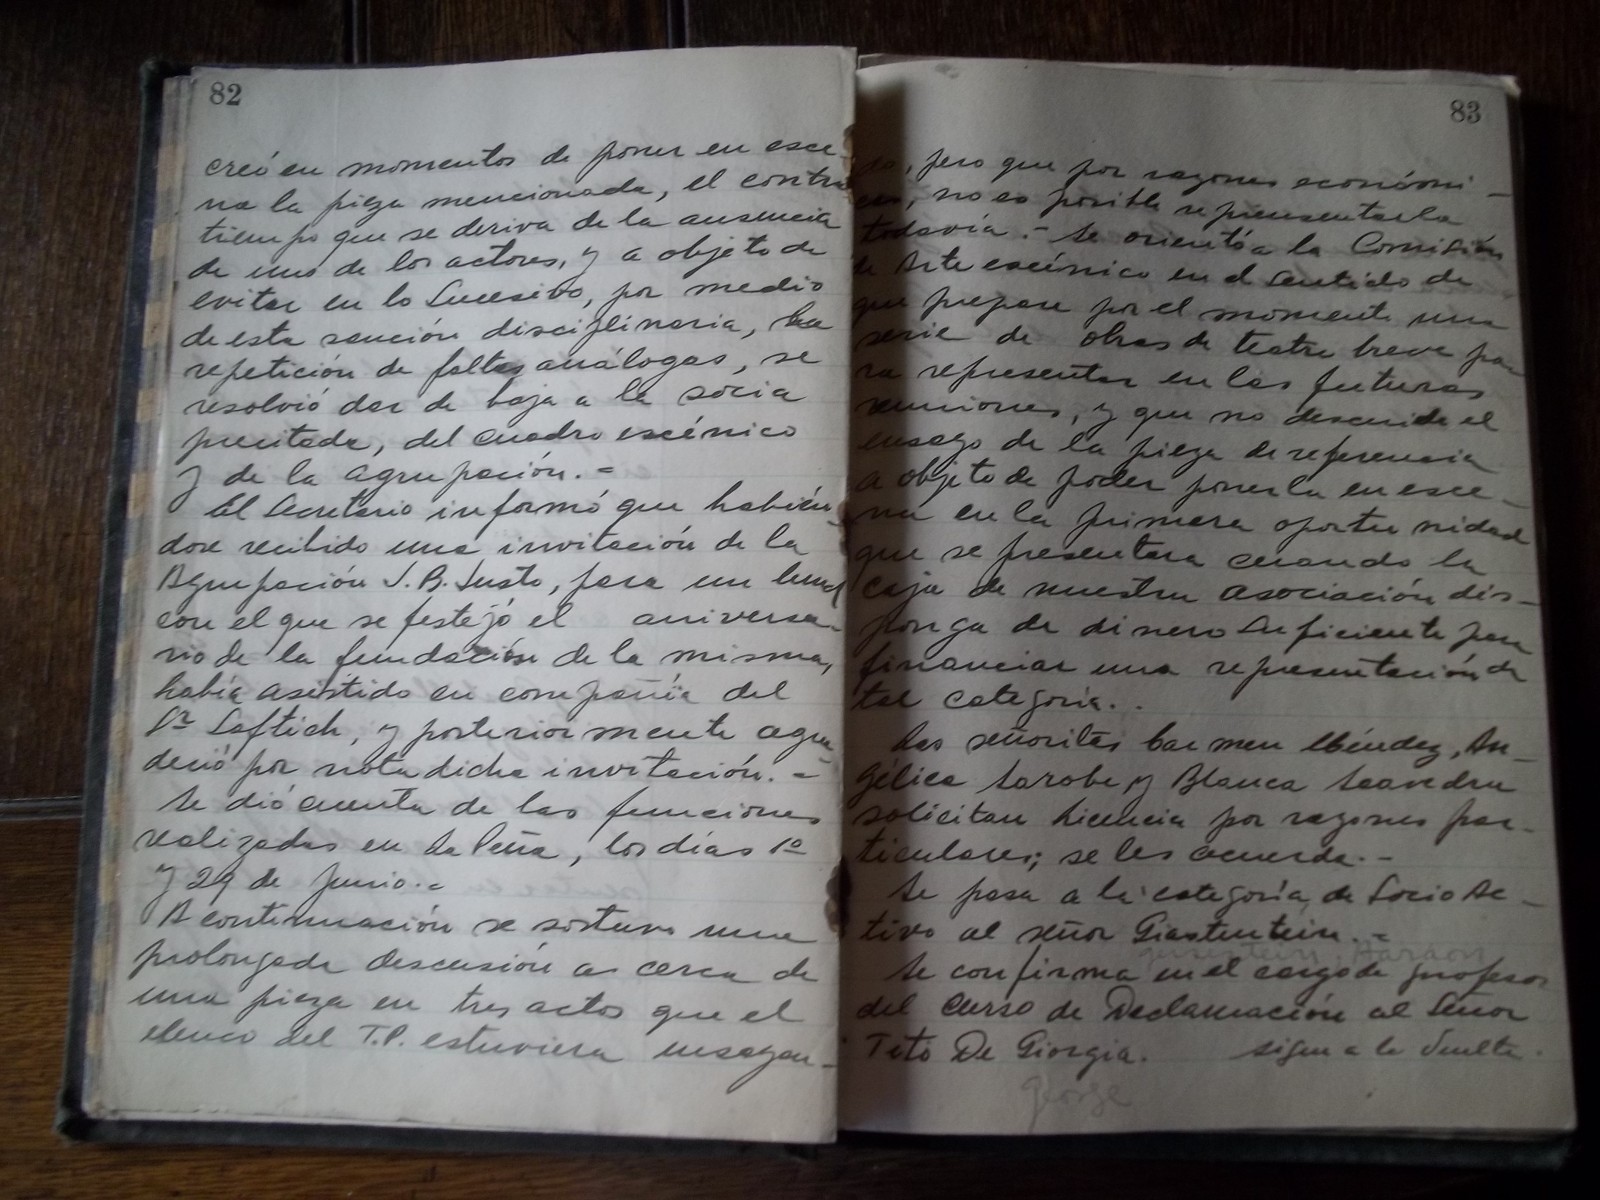 82
creó en momentos de poner en esce-
na la pieza mencionada, el contra
tiempo que se deriva de la ausencia
de uno de los actores, y a objeto de
evitar en lo sucesivo, por medio
de esta sanción disciplinaria, la
repetición de faltas análogas, se
resolvió dar de baja a la socia
precitada, del cuadro escénico
y de la agrupación. =
El Secretario informó que habién-
dose recibido una invitación de la
Agrupación J. B. Justo, para un lunch
con el que se festejó el aniversa-
rio de la fundación de la misma,
había asistido en compañía del
Sr Laftich, y posteriormente agra
deció por nota dicha invitación. =
Se dió cuenta de las funciones
realizadas en La Peña, los días 1º
y 29 de junio. =
A continuación se sostuvo una
prolongada discusión acerca de
una pieza en tres actos que el
elenco del T.P. estuviera ensayan-
83
do, pero que por razones económi-
cas, no es posible representarla
todavía. - Se orientó a la Comisión
de Arte escénico en el sentido de
que prepare por el momento una
serie de obras de teatro breve pa
ra representar en las futuras
reuniones, y que no descuide el
ensayo de la pieza de referencia
a objeto de poder ponerla en esce-
na en la primera oportunidad
que se presentara cuando la
caja de nuestra asociación dis-
ponga de dinero suficiente para
financiar una representación de
tal categoría. -
Las señoritas Carmen Méndez, An-
gélica Sarobe, y Blanca Saavedra
solicitan licencia por razones par-
ticulares; se les acuerda. -
Se pasa a la categoría de Socio Ac-
tivo al señor Giastentein. =
Hardon
Se confirma en el cargo de profesor
del curso de Declamación al Señor
Tito De Giorgia. sigue a la vuelta.
George